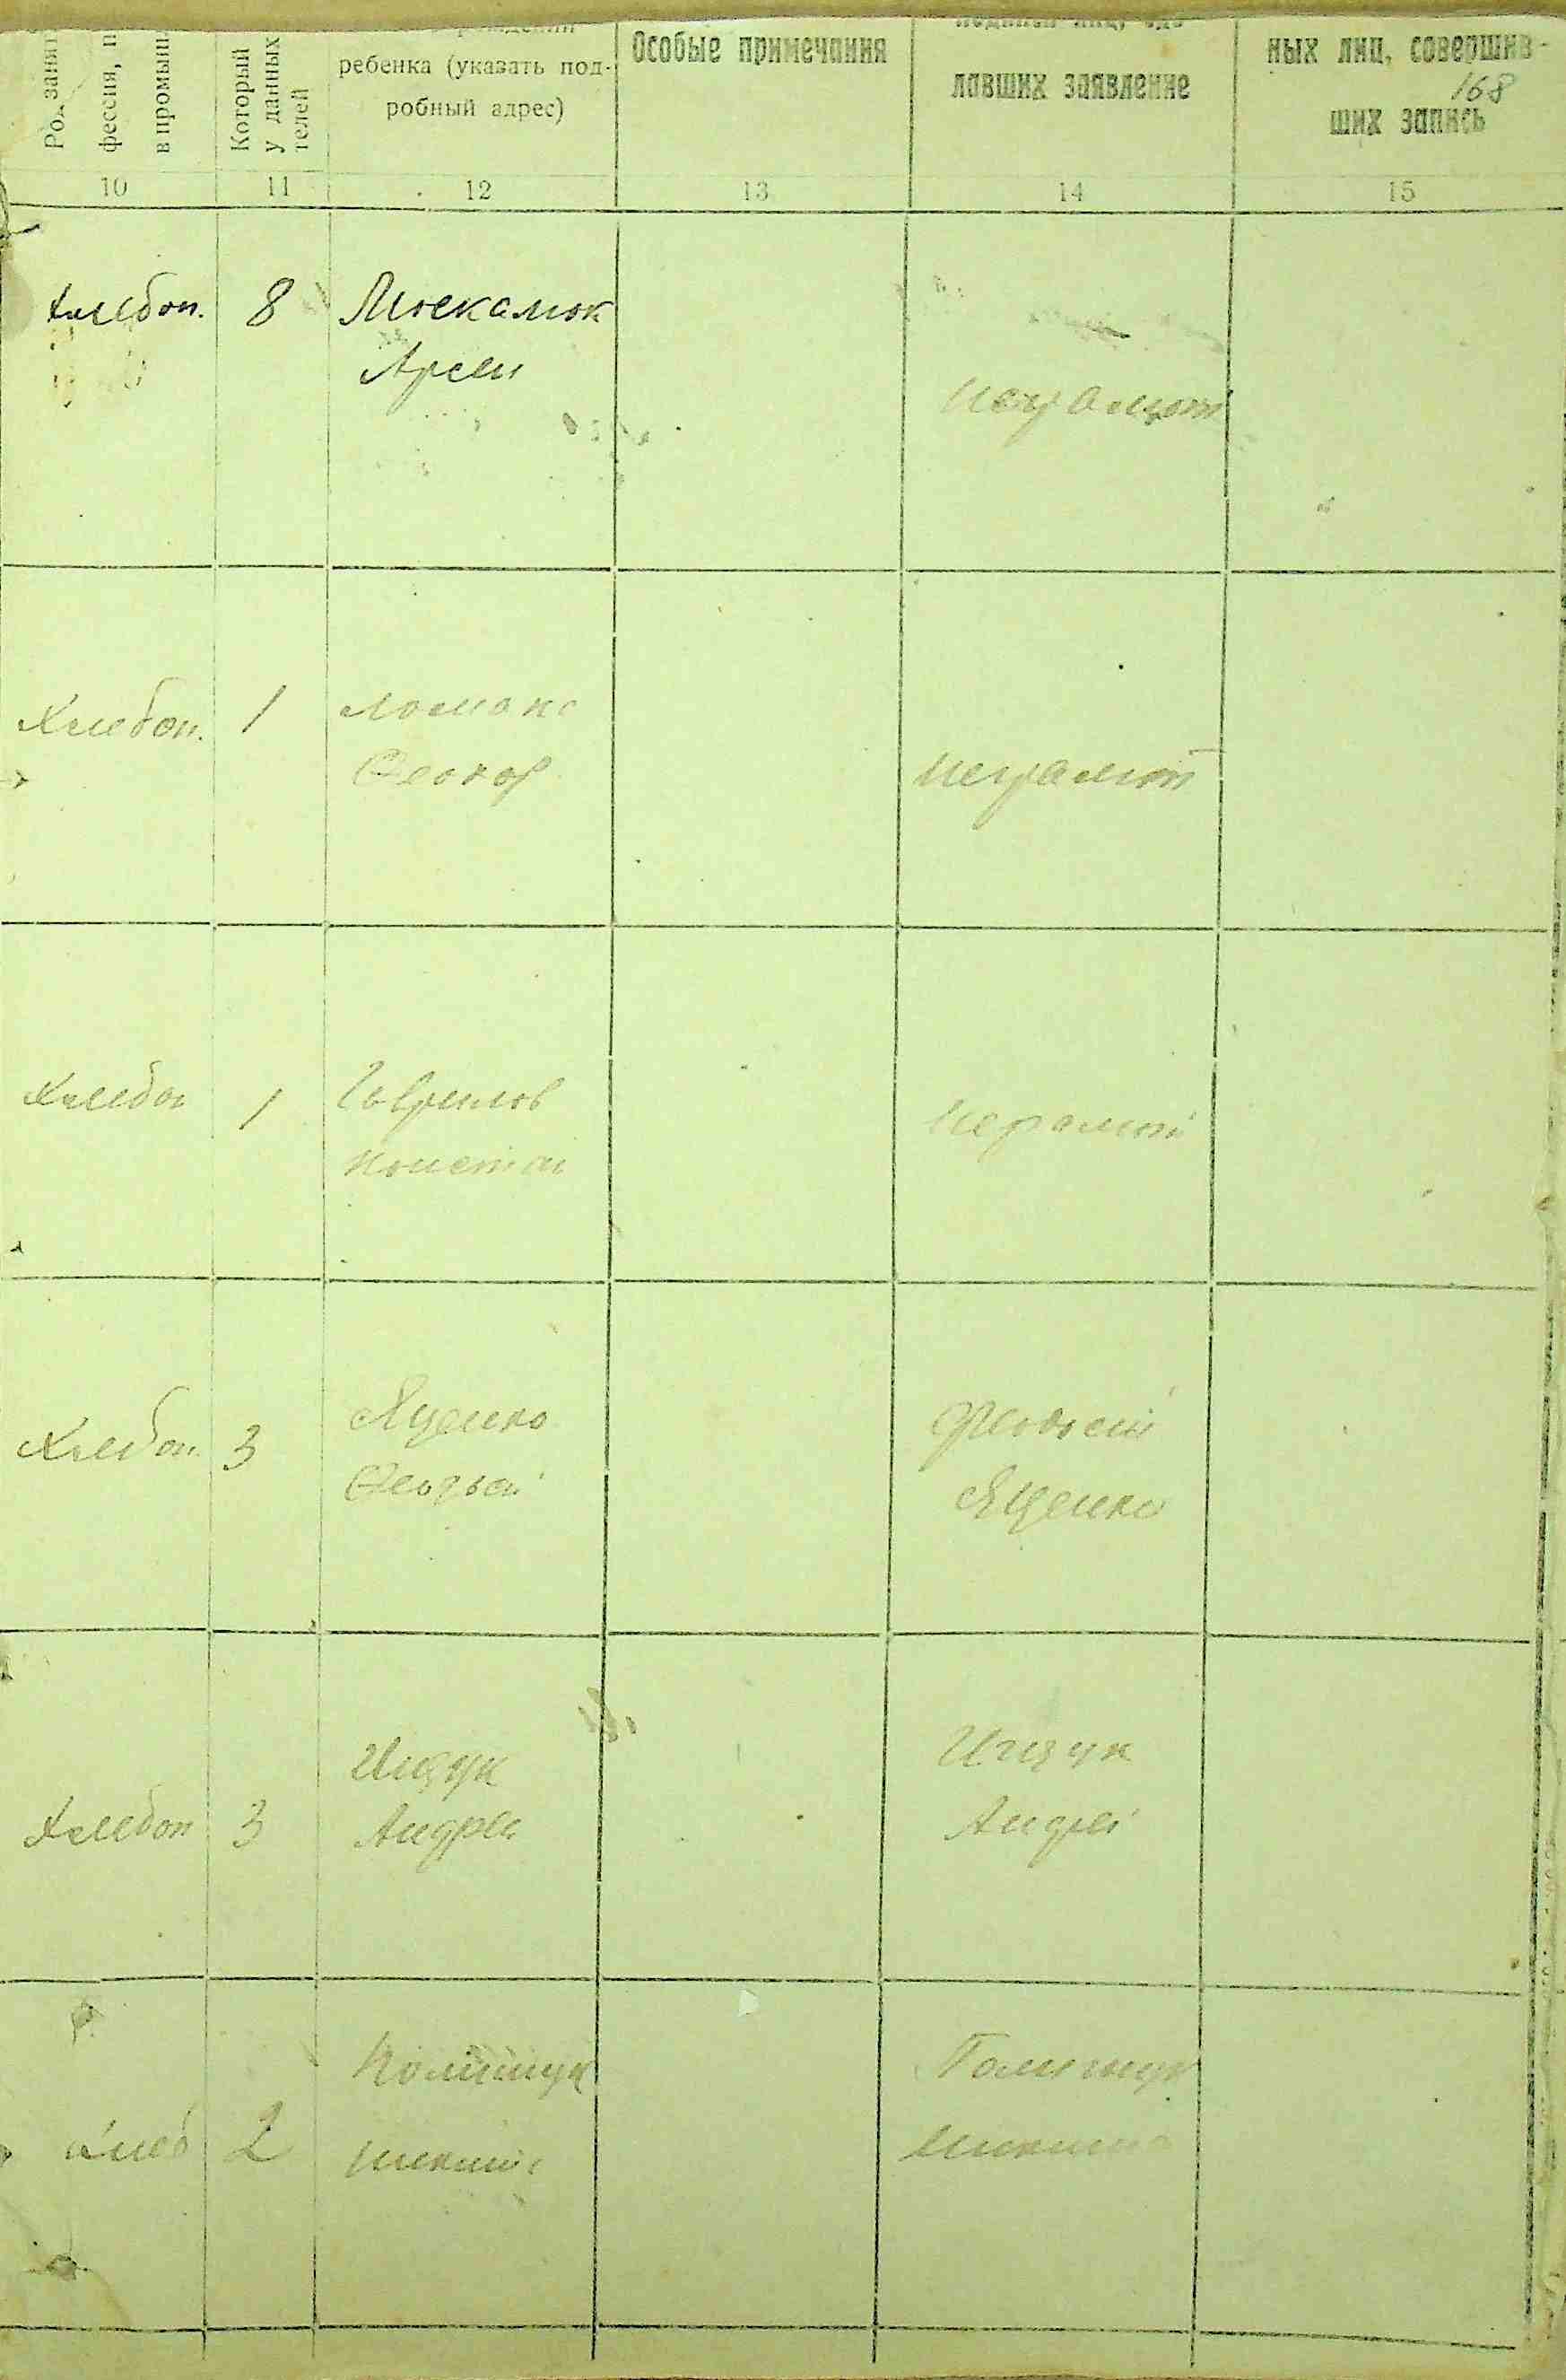 Род занят
фессия, п
в промыш.
Который
у данных
телей
ребенка (указать под-
робный адрес)
Особые примечания
лавших заявление
ных лиц, совершив-
168
ших запись
10 11 12 13 14 15
хлебоп. 8
Арсен
неграмот
Хлебоп. 1
Феодор
неграмот
Хлебоп 1 Гаврилов
Констан
Хлебоп. 3 Яценко
Феодосій
Феодосій
Яценко
Хлебоп 3 Ищук
Андрей
Ищук
Андрей
хлеб 2 Полищук
Никита
Полищук
Никита